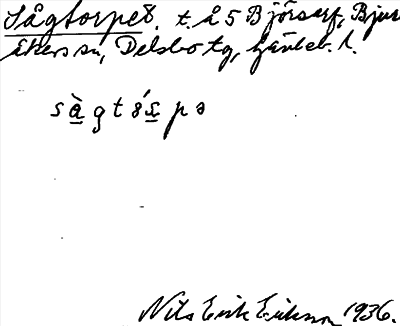 Sågtorpet. t. å 5 Björsarf, Bjur
åkers sn, Delsbo tg, Gävleb. l.
sà̱gtɞ́ṟpə
Nils Erik Erikson 1936.